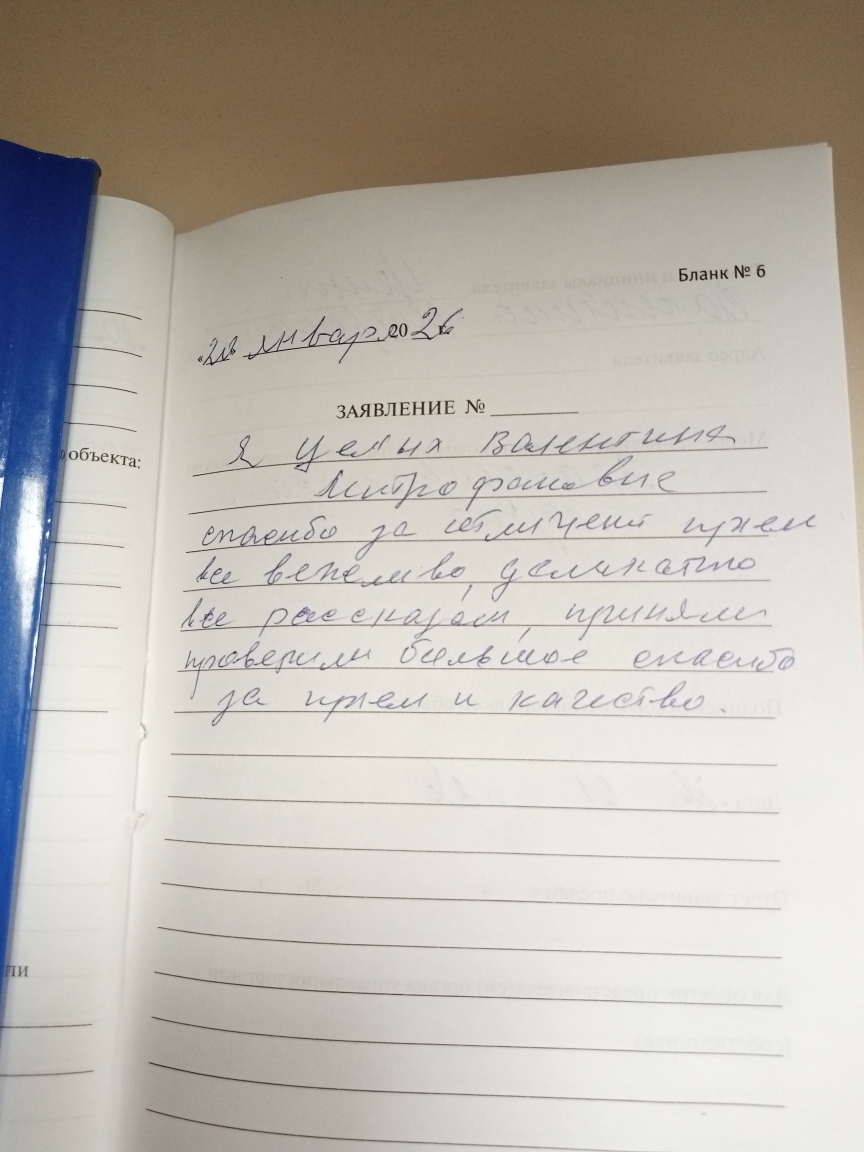 Бланк № 6
января 2026 г.
ЗАЯВЛЕНИЕ № ________
Я Целых Валентина
Митрофановне
спасибо за отличент прием
все вежливо, деликатно
все рассказали, приняли
проверили большое спасибо
за прием и качество.
объекта: